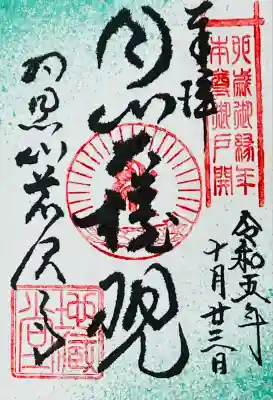 卯歳御縁年
本尊御戸開
奉拝
月山権現
令和五年
十月廿三日
羽黒山荒沢寺
地蔵堂